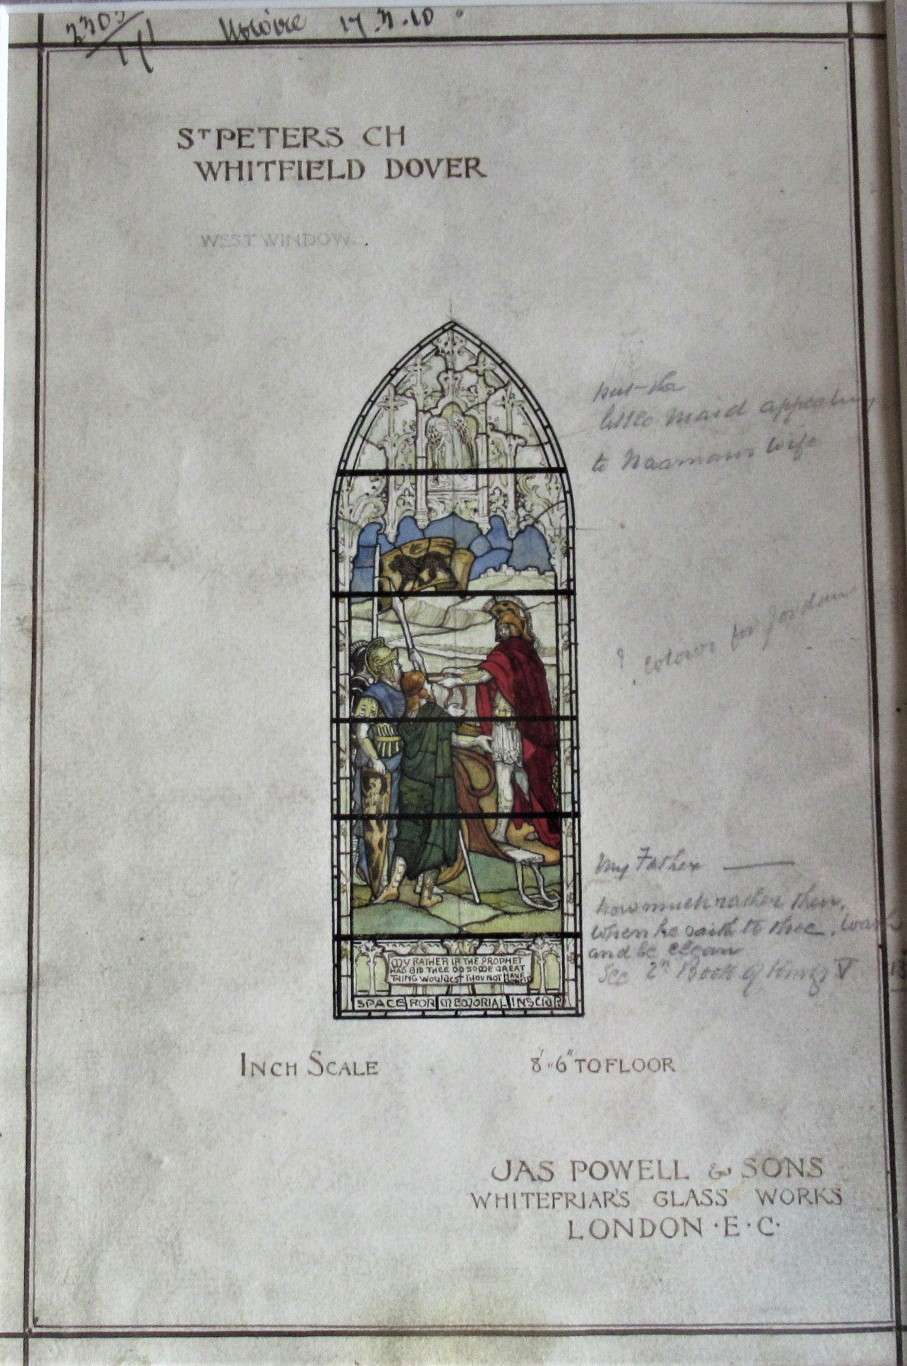 17.2.10
Sᵀ PETERS CH
WHITFIELD DOVER
WEST WINDOW.
put the
little maid appealing
to Naaman's wife
? colour for Jordan
My Father ———
how much rather then,
when he saith to thee, wash
and be clean
See 2ⁿ Book of Kings V
MY FATHER IF THE PROPHET
HAD BID THEE DO SOME GREAT
THING WOULDEST THOU NOT HAVE
SPACE FOR MEMORIAL INSCRIP
INCH SCALE
8'-6" TO FLOOR
JAS POWELL & SONS
WHITEFRIARS GLASS WORKS
LONDON·E·C·